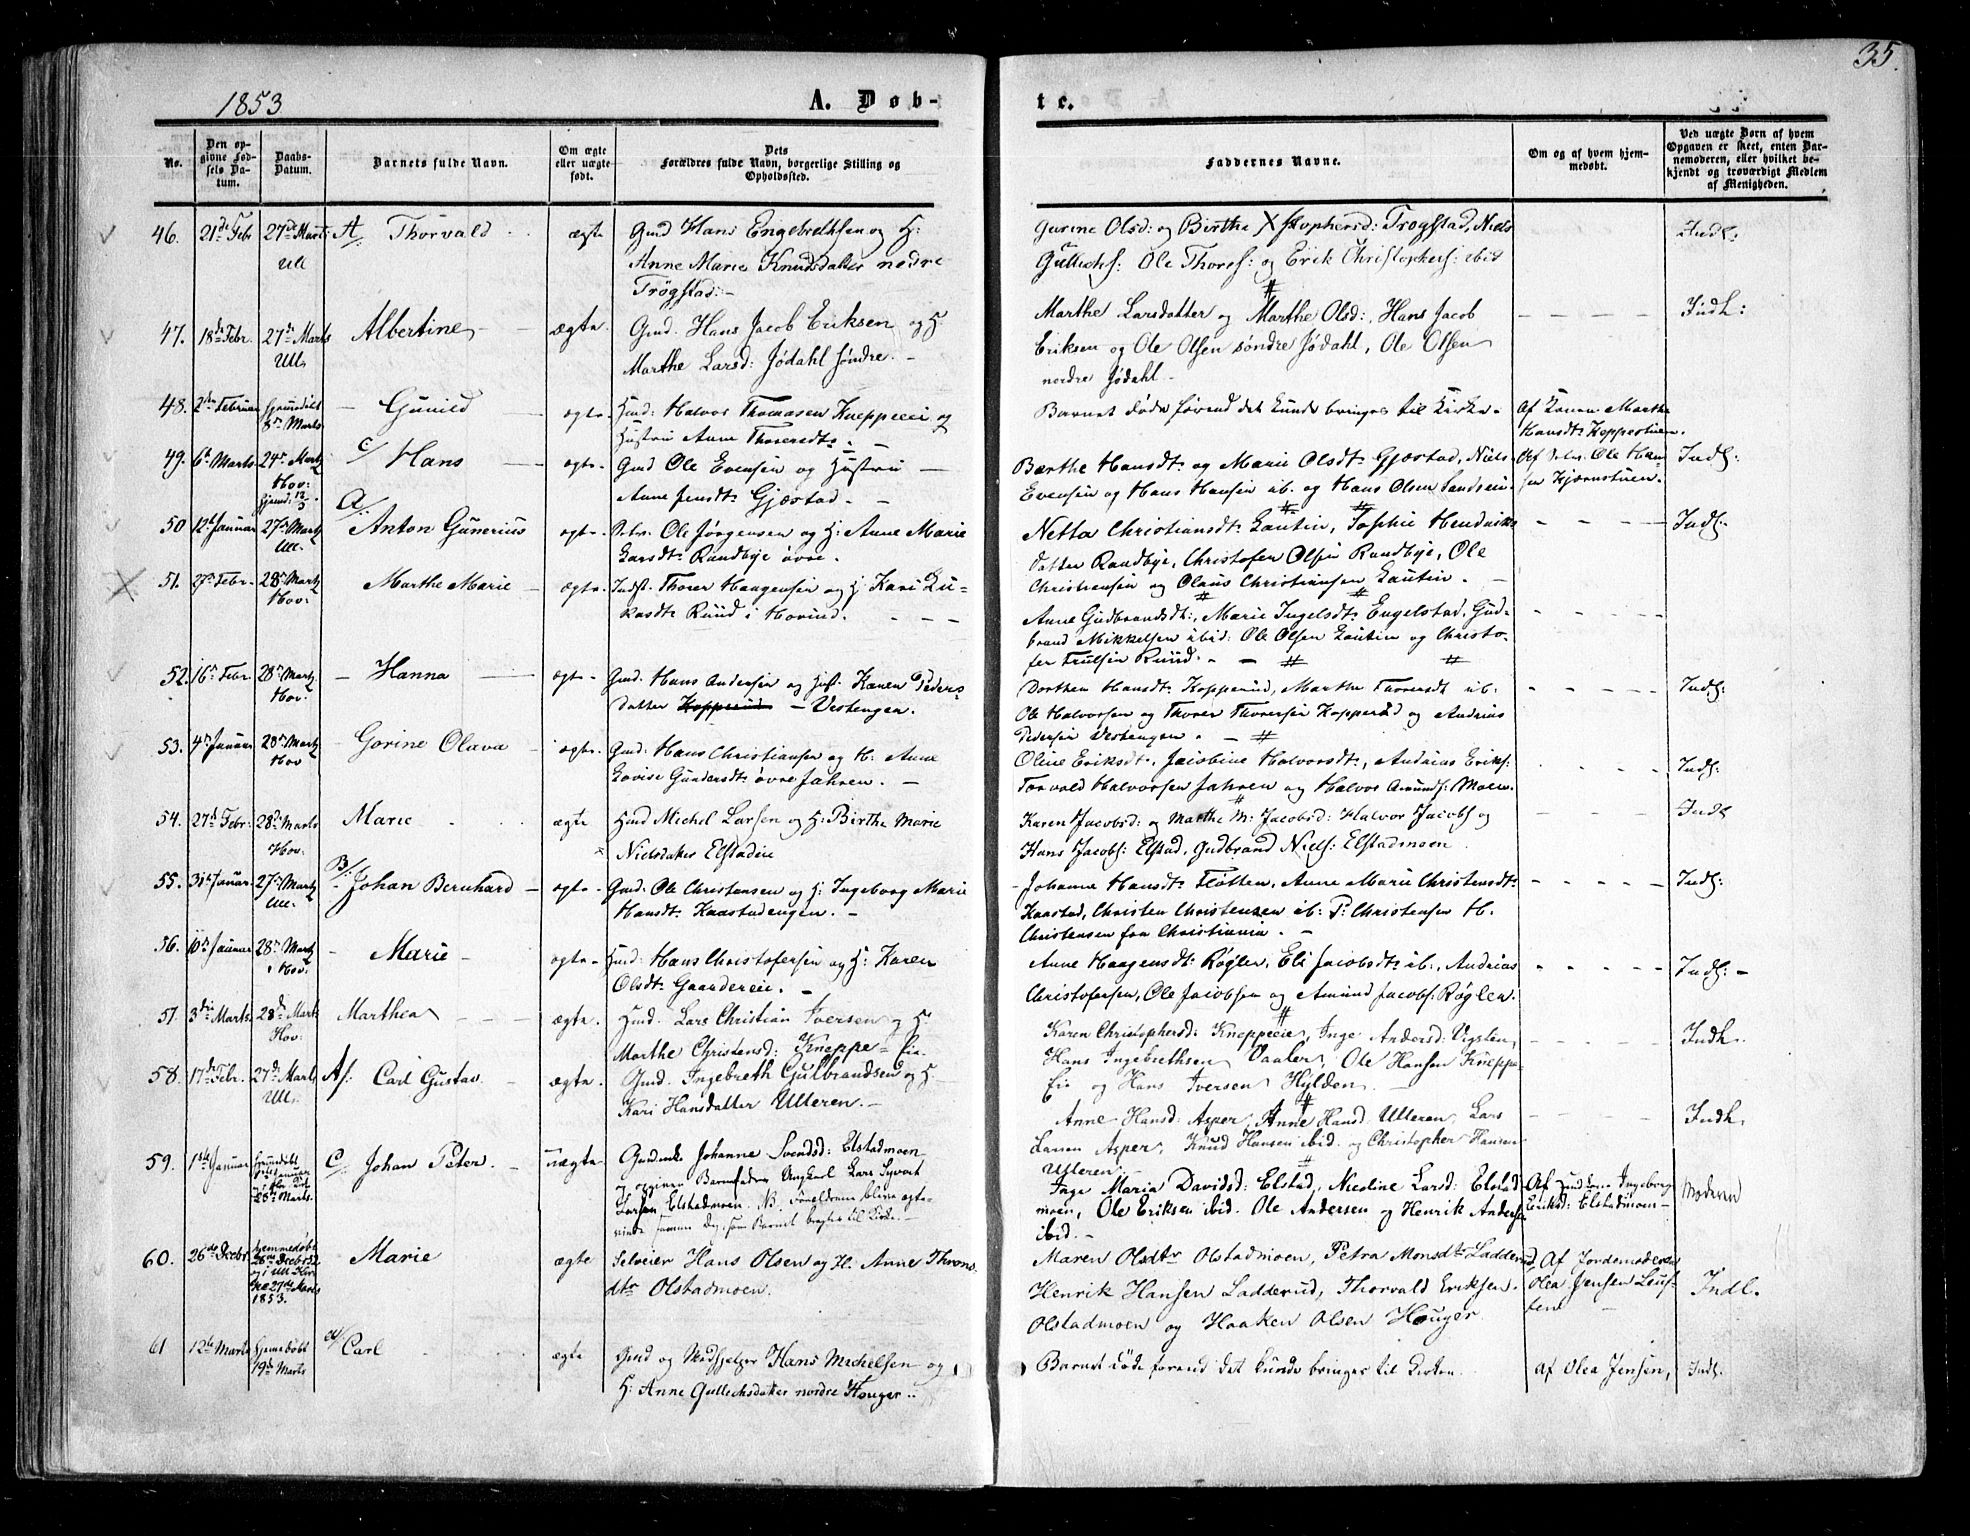 35.
1853
A. Døb-
te.
No.
Den op-
givne Fød-
sels Da-
tum.
Daabs-
Datum.
Barnets fulde Navn.
Om ægte
eller uægte
født.
Dets
Forældres fulde Navn, borgerlige Stilling og
Opholdssted.
Faddernes Navne.
Om og af hvem hjem-
medøbt.
Ved uægte Børn af hvem
Opgaven er skeet, enten Bar-
nemoderen, eller hvilket be-
kjendt og troværdigt Medlem
af Menigheden.
46. 21de Febr 27de Marts Ull A/: Thorvald ægte
Gmd Hans Engebrethsen og H:
Anne Marie Knudsdatter nedre
Trøgstad:-
Gurine Olsd: og Birthe Xstophersd: Trøgstad, Niels
Gulleks: Ole Thores: og Erik Christophers: ibid
Indh:
47. 18de Febr. 27de Marts Ull. Albertine ægte.
Gmd. Hans Jacob Eriksen og H.
Marthe Larsd: Jødahl søndre.-
Marthe Larsdatter og Marthe Olsd:, Hans Jacob
Eriksen og Ole Olsen søndre Jødahl, Ole Olsen
nordre Jødahl.
Indh:
48. 2den Februar Hjemdøbt 8de Marts - Gunild ægte.
Hmd: Halvor Thomasen Kneppeiei og
Hustru Anne Thoresdtr. -
Barnet døde førend det kunde bringes til Kirke.
Af Konen Marthe
Hansdtr. Koppestuen.
49. 6te Marts. 24de Marts Hov: Hjemd: 12/3. C/ Hans ægte.
Gmd Ole Evensen og Hustru
Anne Jensdtr. Gjæstad. -
Berthe Hansdtr. og Marie Olsdtr. Gjæstad, Niels
Evensen og Hans Hansen ib. og Hans Olsen
Af Selv. Ole Han-
sen Kjærnstuen.
Indh:
50 12te Januar 27de Marts Ull. A/: Anton Gunerius ægte.
Selv. Ole Jørgensen og H: Anne Marie
Larsdtr. Randbye øvre.
Netta Christiansdtr. Lautin, Sophie Hendriks
datter Randbye, Christofer Olsen Randbye, Ole
Christiansen og Olaus Christiansen Lautin.
Indh:
51. 27de Febr. 28de Marts Hov: Marthe Marie ægte.
Indst. Thorer Haagensen og H. Kari Lu-
kasdtr. Ruud i Hovind.
Anne Gudbrandsdt:, Marie Ingelsdtr. Engelstad, Gud-
brand Mikkelsen ibid: Ole Olsen Lautin og Christo-
fer Trulsen Ruud.
Indh:
52. 16de Febr. 28de Marts Hov: - Hanna ægte.
Gmd. Hans Andersen og Hust. Karen Peders
datter Kopperud - Vestengen.
Dorthea Hansdtr. Kopperud, Marthe Thoresdtr ib:
Ole Halvorsen og Thorer Thorersen Kopperud og Andreas
Pedersen Vestengen.
Indh:
53. 4de Januar 28de Marts Hov - Gorine Olava ægte.
Gmd: Hans Christiansen og H: Anne
Lovise Gundersdtr. øvre Jahren. -
Oline Eriksdt., Jacobine Halvorsdt., Andreas Eriks:
Torvald Halvorsen Jahren og Halvor Amunds: Moen.
Indh:
54. 27de Febr: 28de Marts Hov: Marie ægte
Hmd Michel Larsen og H: Birthe Marie
Nielsdatter Elstadeie
Karen Jacobsd: og Marthe M: Jacobsd: Halvor Jacobs og
Hans Jacobs: Elstad, Gudbrand Niels: Elstadmoen
Indh
55. 31te Januar. 27de Marts Ull. B/: Johan Bernhard ægte.
Gmd: Ole Christensen og H: Ingeborg Marie
Hansdtr. Kaastadengen. -
Johanne Hansdtr. Fløtten, Anne Marie Christensdtr.
Kaastad, Christen Christensen ib: P: Christensen H.
Christensen fra Christiania. -
Indh:
56. 10de Januar 28de Marts i Hov: - Marie ægte.
Hmd: Hans Christofersen og H: Karen
Olsdtr. Gaardereie.
Anne Haagensdt: Røglen, Eli Jacobsdtr. ib:, Andreas
Christofersen, Ole Jacobsen og Amund Jacobs: Røglen.
Indh: -
57. 3die Marts. 28de Marts Hov: Marthea ægte.
Hmd. Lars Christian Iversen og H:
Marthe Christensd: Kneppe- Eie.
Karen Christophersd: Kneppeeie, Inge Andersd: Vigsten,
Hans Ingebrethsen Vaaler, Ole Hansen Kneppe
Eie og Hans Iversen Hylden.
Indh.
58. 17de Febr. 27de Marts Ull. A/: Carl Gustav ægte.
Gmd. Ingebreth Gulbrandsen og H.
Kari Hansdatter Ulleren. -
Anne Hansd: Asper, Anne Hansd Ulleren, Lars
Larsen Asper, Knud Hansen ibid. og Christopher Hansen
Ulleren.
Indh.
59. 1ste Januar 28de Marts. C/: Johan Peter uægte.
Johanne Svendsd: Elstadmoen
og opgiven Barnefader Ungkarl Lars Syvert
Larsen Elstadmoen. NB. Forældrene bleve egte-
viede samme Dag, som Barnet bragtes til Kirke.
Inge Maria Davidsd: Elstad, Nicoline Larsd: Elstad
moen, Ole Eriksen ibid. Ole Andersen og Henrik Andersen
ibid. -
Af Ingeborg
Eriksd: Elstadmoen
Moderen
60. 26de Decbr. hjemmedøbt 26de Decbr 52 og i Ull Kir- ke 27de Marts 1853. Marie ægte
Selveier Hans Olsen og H. Anne Throns
dtr Olstadmoen.
Maren Olsdtr Olstadmoen, Petra Monsdtr. Ladderud,
Henrik Hansen Ladderud, Thorvald Eriksen
Olstadmoen og Haaken Olsen Houger.
Af Jordemoderen
Olea Jensen
Indl.
61 12te Marts Hjemmedøbt 19de Marts Carl ægte
Gmd og Skedsfjelger Hans Michelsen og
H: Anne Gulleksdatter nordre Houger..
Barnet døde forend det kunde bringes til Kirken.
Af Olea Jensen,
Indh.